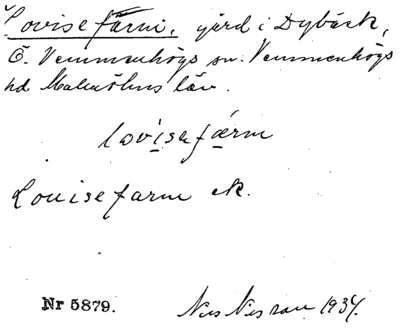 Lovisefarm, gård i Dybäck,
Ö. Vemmenhögs sn. Vemmenhögs
hd. Malmöhus län.
lovisefærm
Louisefarm ek.
Nr 5879.
1934.